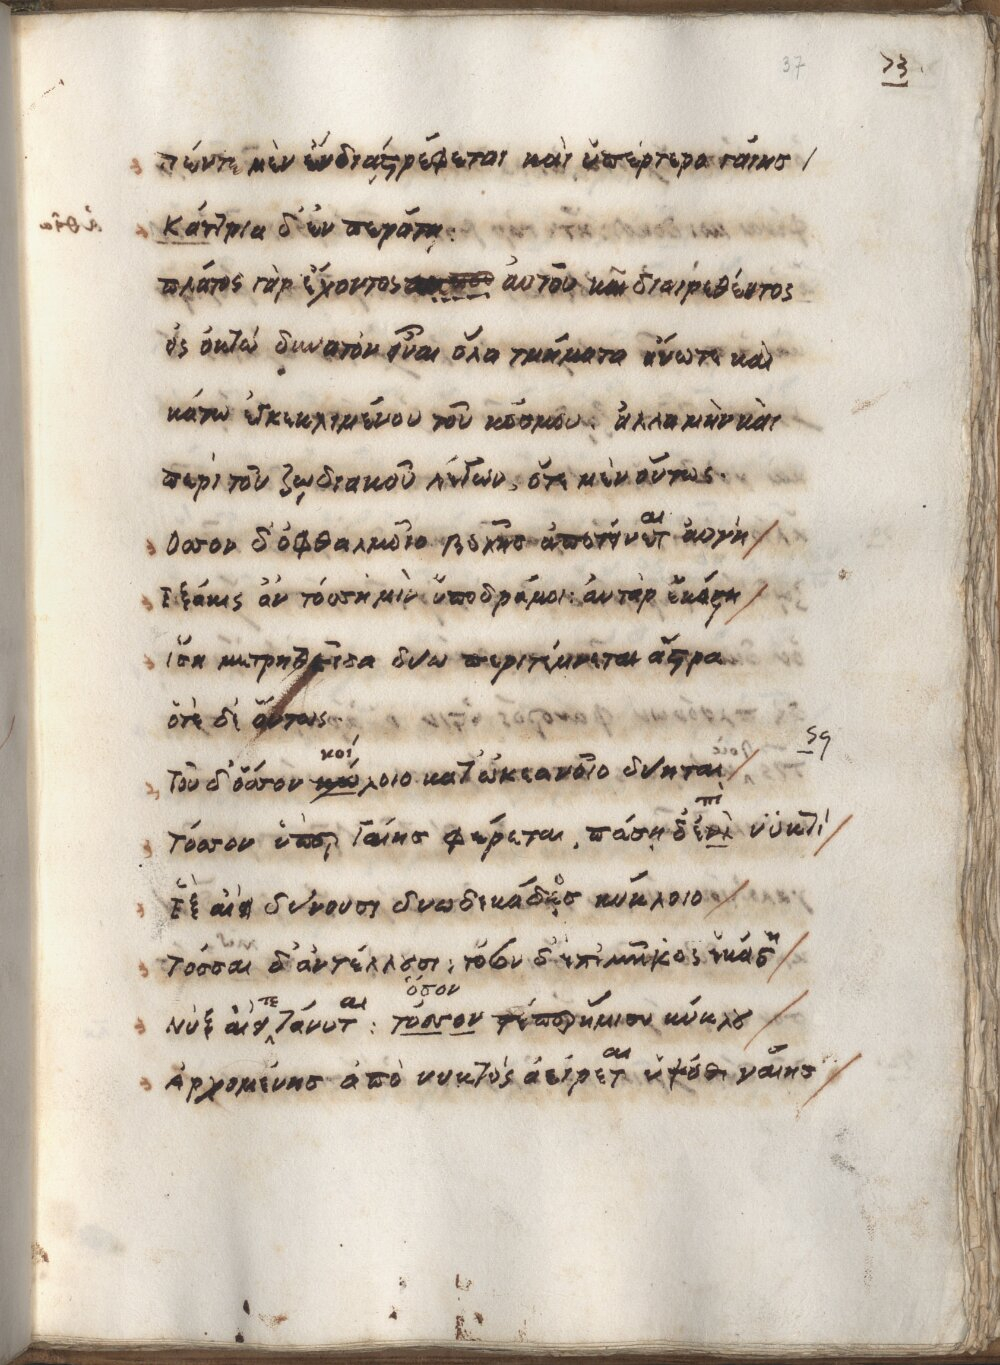 37 73
πέντε μὲν ἐνδιαστρέφεται καὶ ὑπέρτερα γαίης /
Κάντρια δ' ἐν περάτῃ·
πλάτος γὰρ ἔχοντος αὐτοῦ καὶ διαιρεθέντος
ὀς ὀκτὼ δυνατὸν εἶναι ὅλα τμήματα ἄνωτε καὶ
κάτω ἐγκεκλιμένου τοῦ κόσμου· ἀλλαμὴν καὶ
περὶ τοῦ ζῳδιακοῦ λέγων, ὅτε μὲν οὕτως·
Οσσον δ' ὀφθαλμοῖο βολῆς ἀποτείνεται ἀυγὴ /
Εξάκις ἀν τόσση μὶν ὑποδράμοι· ἀυτὰρ ἑκάστη /
ἴση μετρηθεῖσα δυω περιτέμνεται ἄστρα
ὁτὲ δὲ οὕτως·
59
κοί
Τοῦ δ' ὅσσον κώλοιο κατ' ὠκεανοῖο δύηται /
πὶ
Τόσσον ὑπὲρ γαίης φέρεται, πάσῃ δ' ἐνὶ νυκτὶ /
Ἓξ αἰεὶ δύνουσι δυωδεκάδες κύκλοιο /
Τόσσαι δ' ἀντέλλουσι· τόσον δ' ἐπὶ μῆκος ἑκάστη /
ὅσον
Νὺξ αἰεὶ τετάνυται· τόσσον ἥμισυ κύκλου /
Αρχομένης ἀπὸ νυκτὸς ἀείρεται ὑψόθι γαίης /